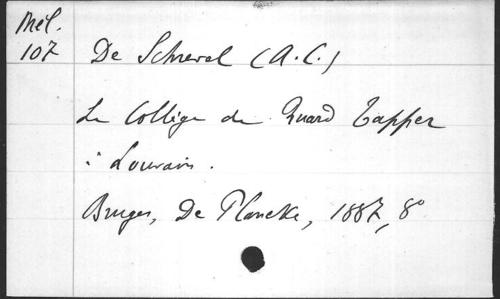 Mél.
107 De Schrevel (A.C.)
Le Collège de Ruard Tapper
à Louvain.
Bruges, De Plancke, 1887, 8°